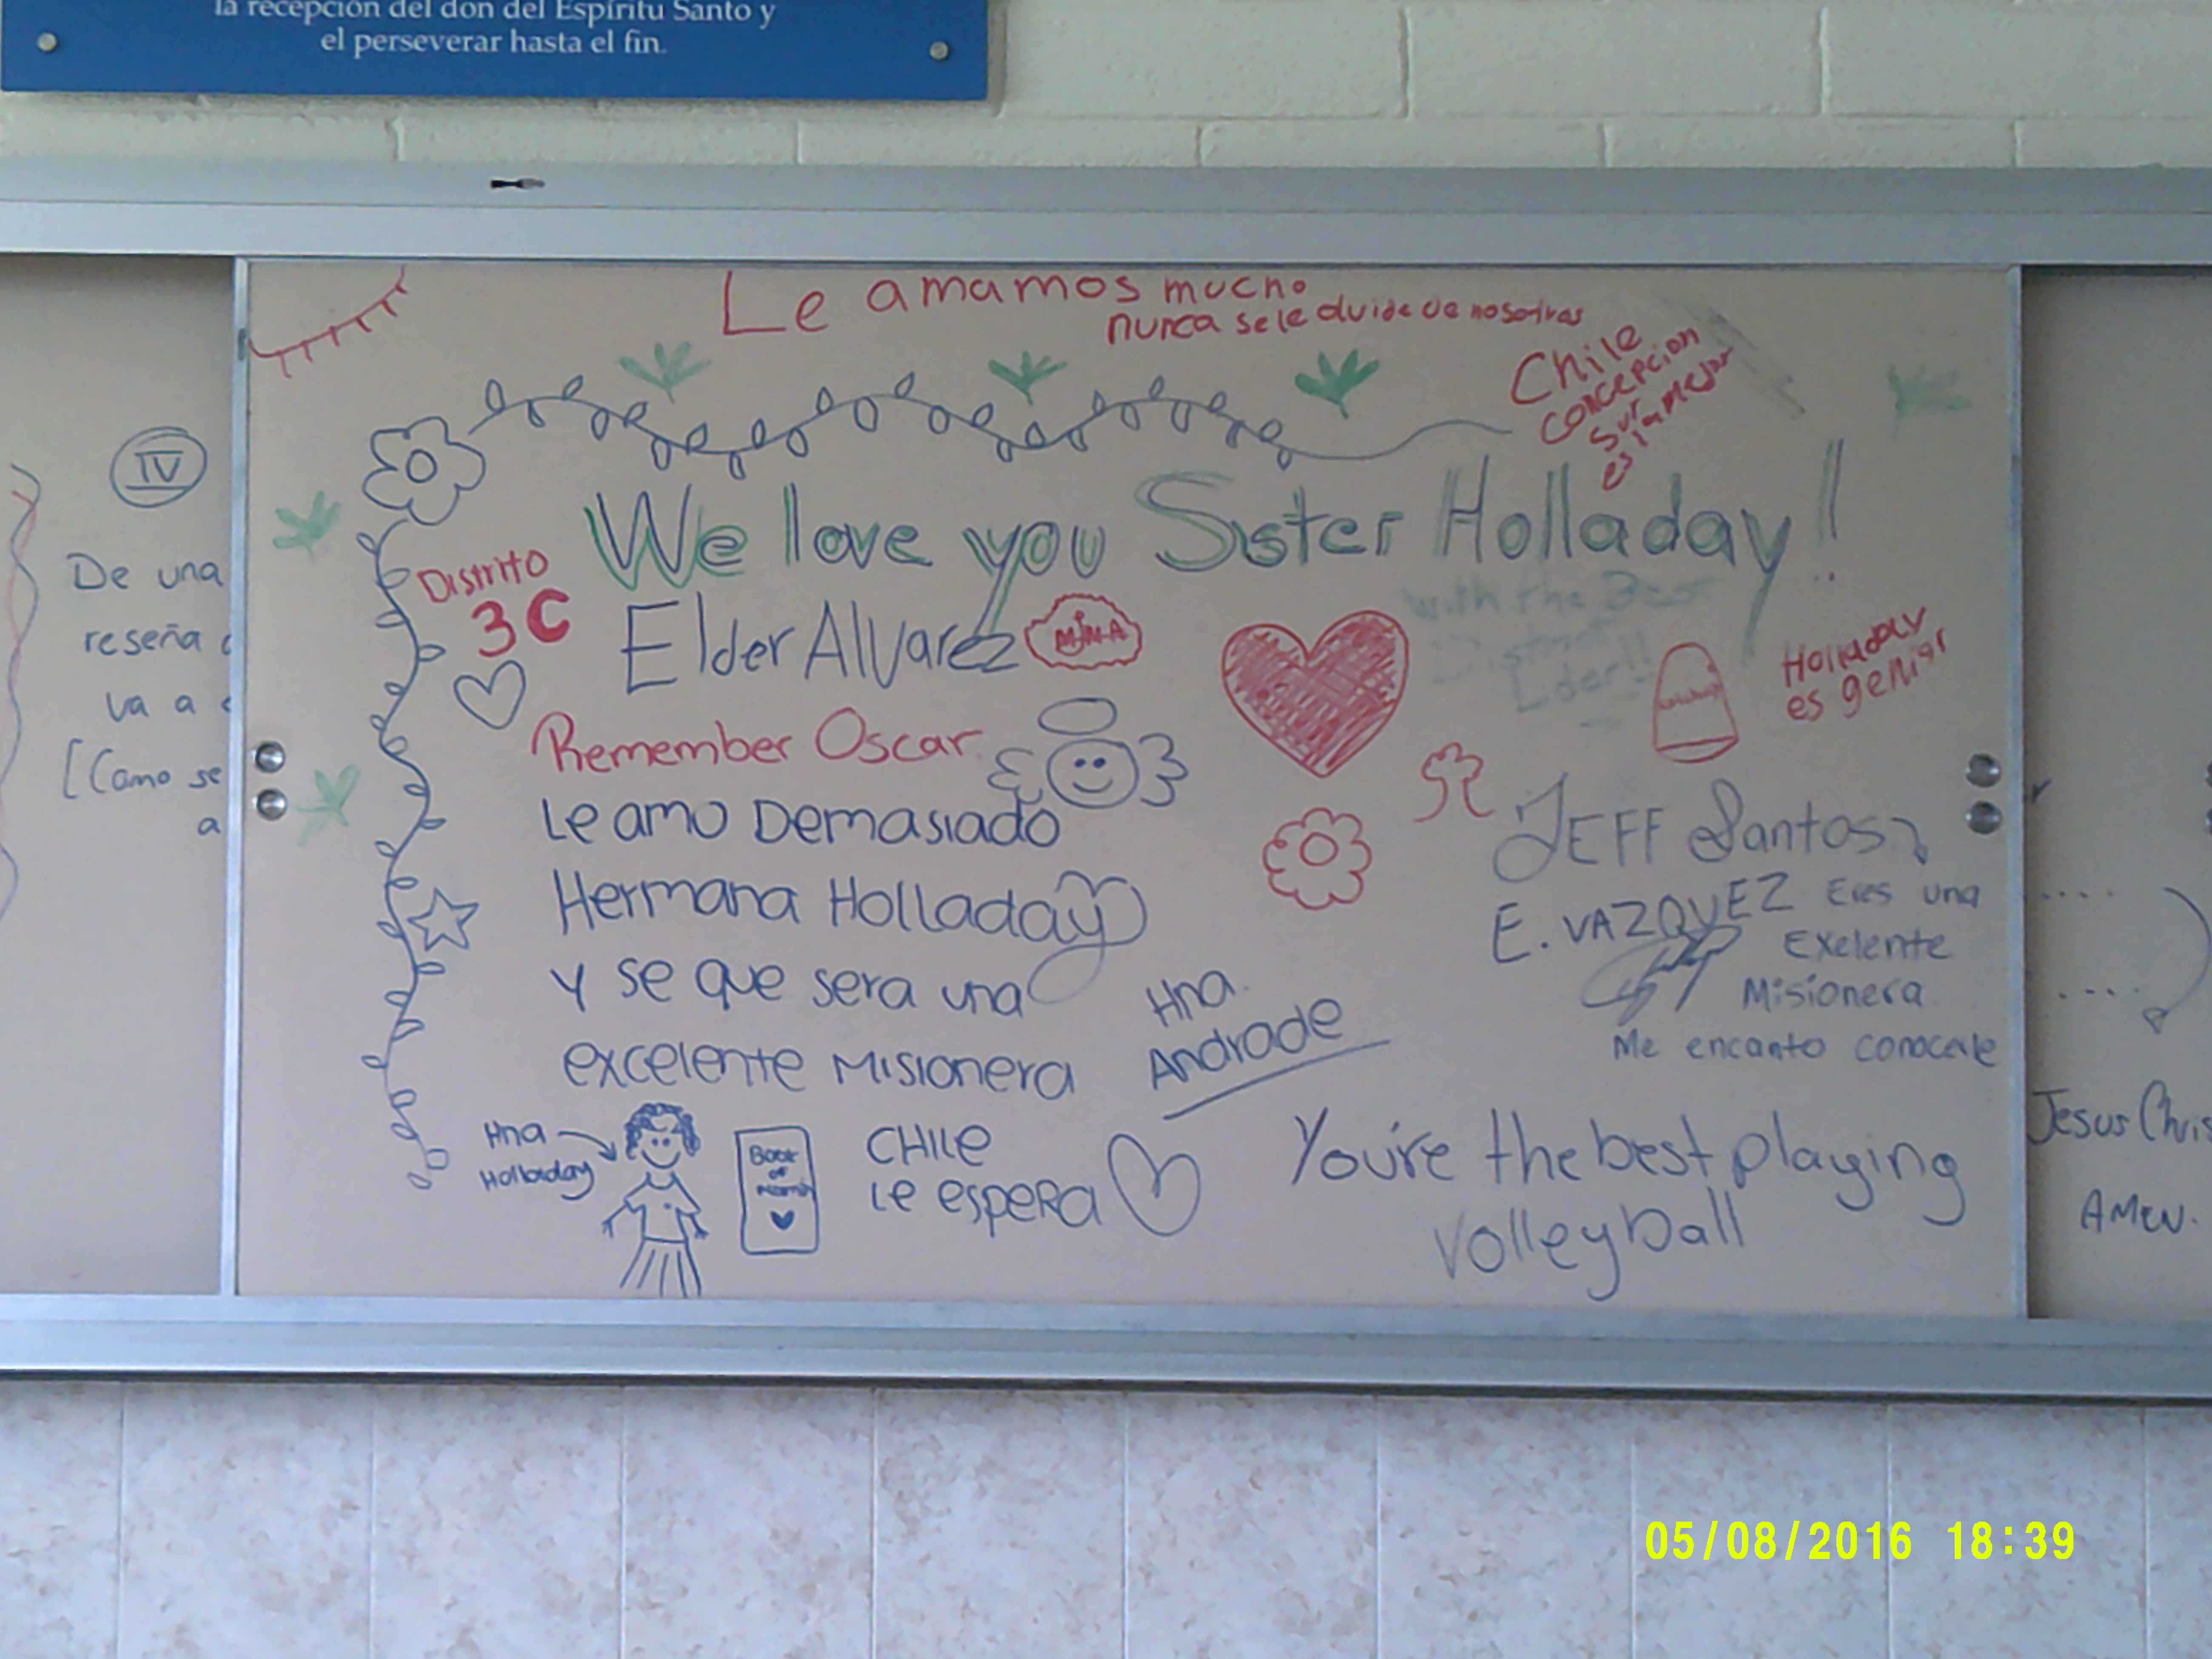 la recepción del don del Espíritu Santo y
el perseverar hasta el fin.
Le amamos mucho
nunca se le olvide de nosotras
Chile
concepcion
sur
es la mejor
We love you Sister Holladay!
Distrito
3C
Elder Alvarez
MiMA
with the Best
District
Lider!!
Holladay
es genial
Remember Oscar
Le amo Demasiado
Hermana Holladay
y se que sera una
excelente Misionera
Hna.
Andrade
JEFF Santos
E. VAZQUEZ
Eres una
Exelente
Misionera
Me encanto conocerle
Hna
Holladay
Book
of
CHILE
Le espera
You're the best playing
volleyball
IV
De una
reseña
va a
[Como se
a
r
....
....
Jesus Chris
AMEN.
05/08/2016 18:39